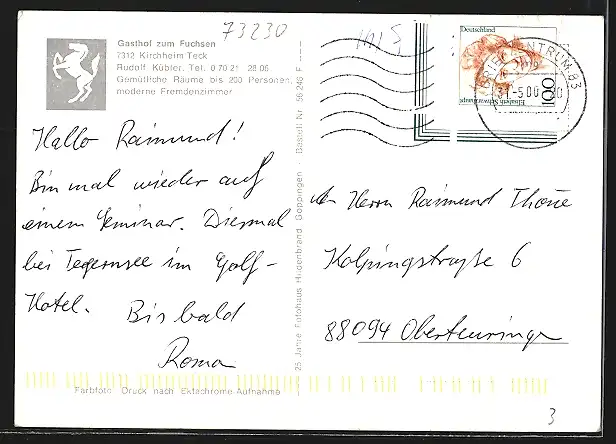 73230
Gasthof zum Fuchsen
7312 Kirchheim Teck
Rudolf Kübler, Tel. 0 70 21 28 06
Gemütliche Räume bis 200 Personen,
moderne Fremdenzimmer
Hallo Raimund!
Bin mal wieder auf
einem Seminar. Diesmal
bei Tegernsee im Golf-
Hotel. Bis bald
Roma
Farbfoto Druck nach Ektachrome-Aufnahme
25 Jahre Fotohaus Hildenbrand Göppingen · Bestell Nr. 56 246 F
Deutschland
Elisabeth Schwarzhaupt
100
BRIEFZENTRUM 83
31-5.00
An Herrn Raimund Thöne
Kolpingstraße 6
88094 Oberteuringen
3